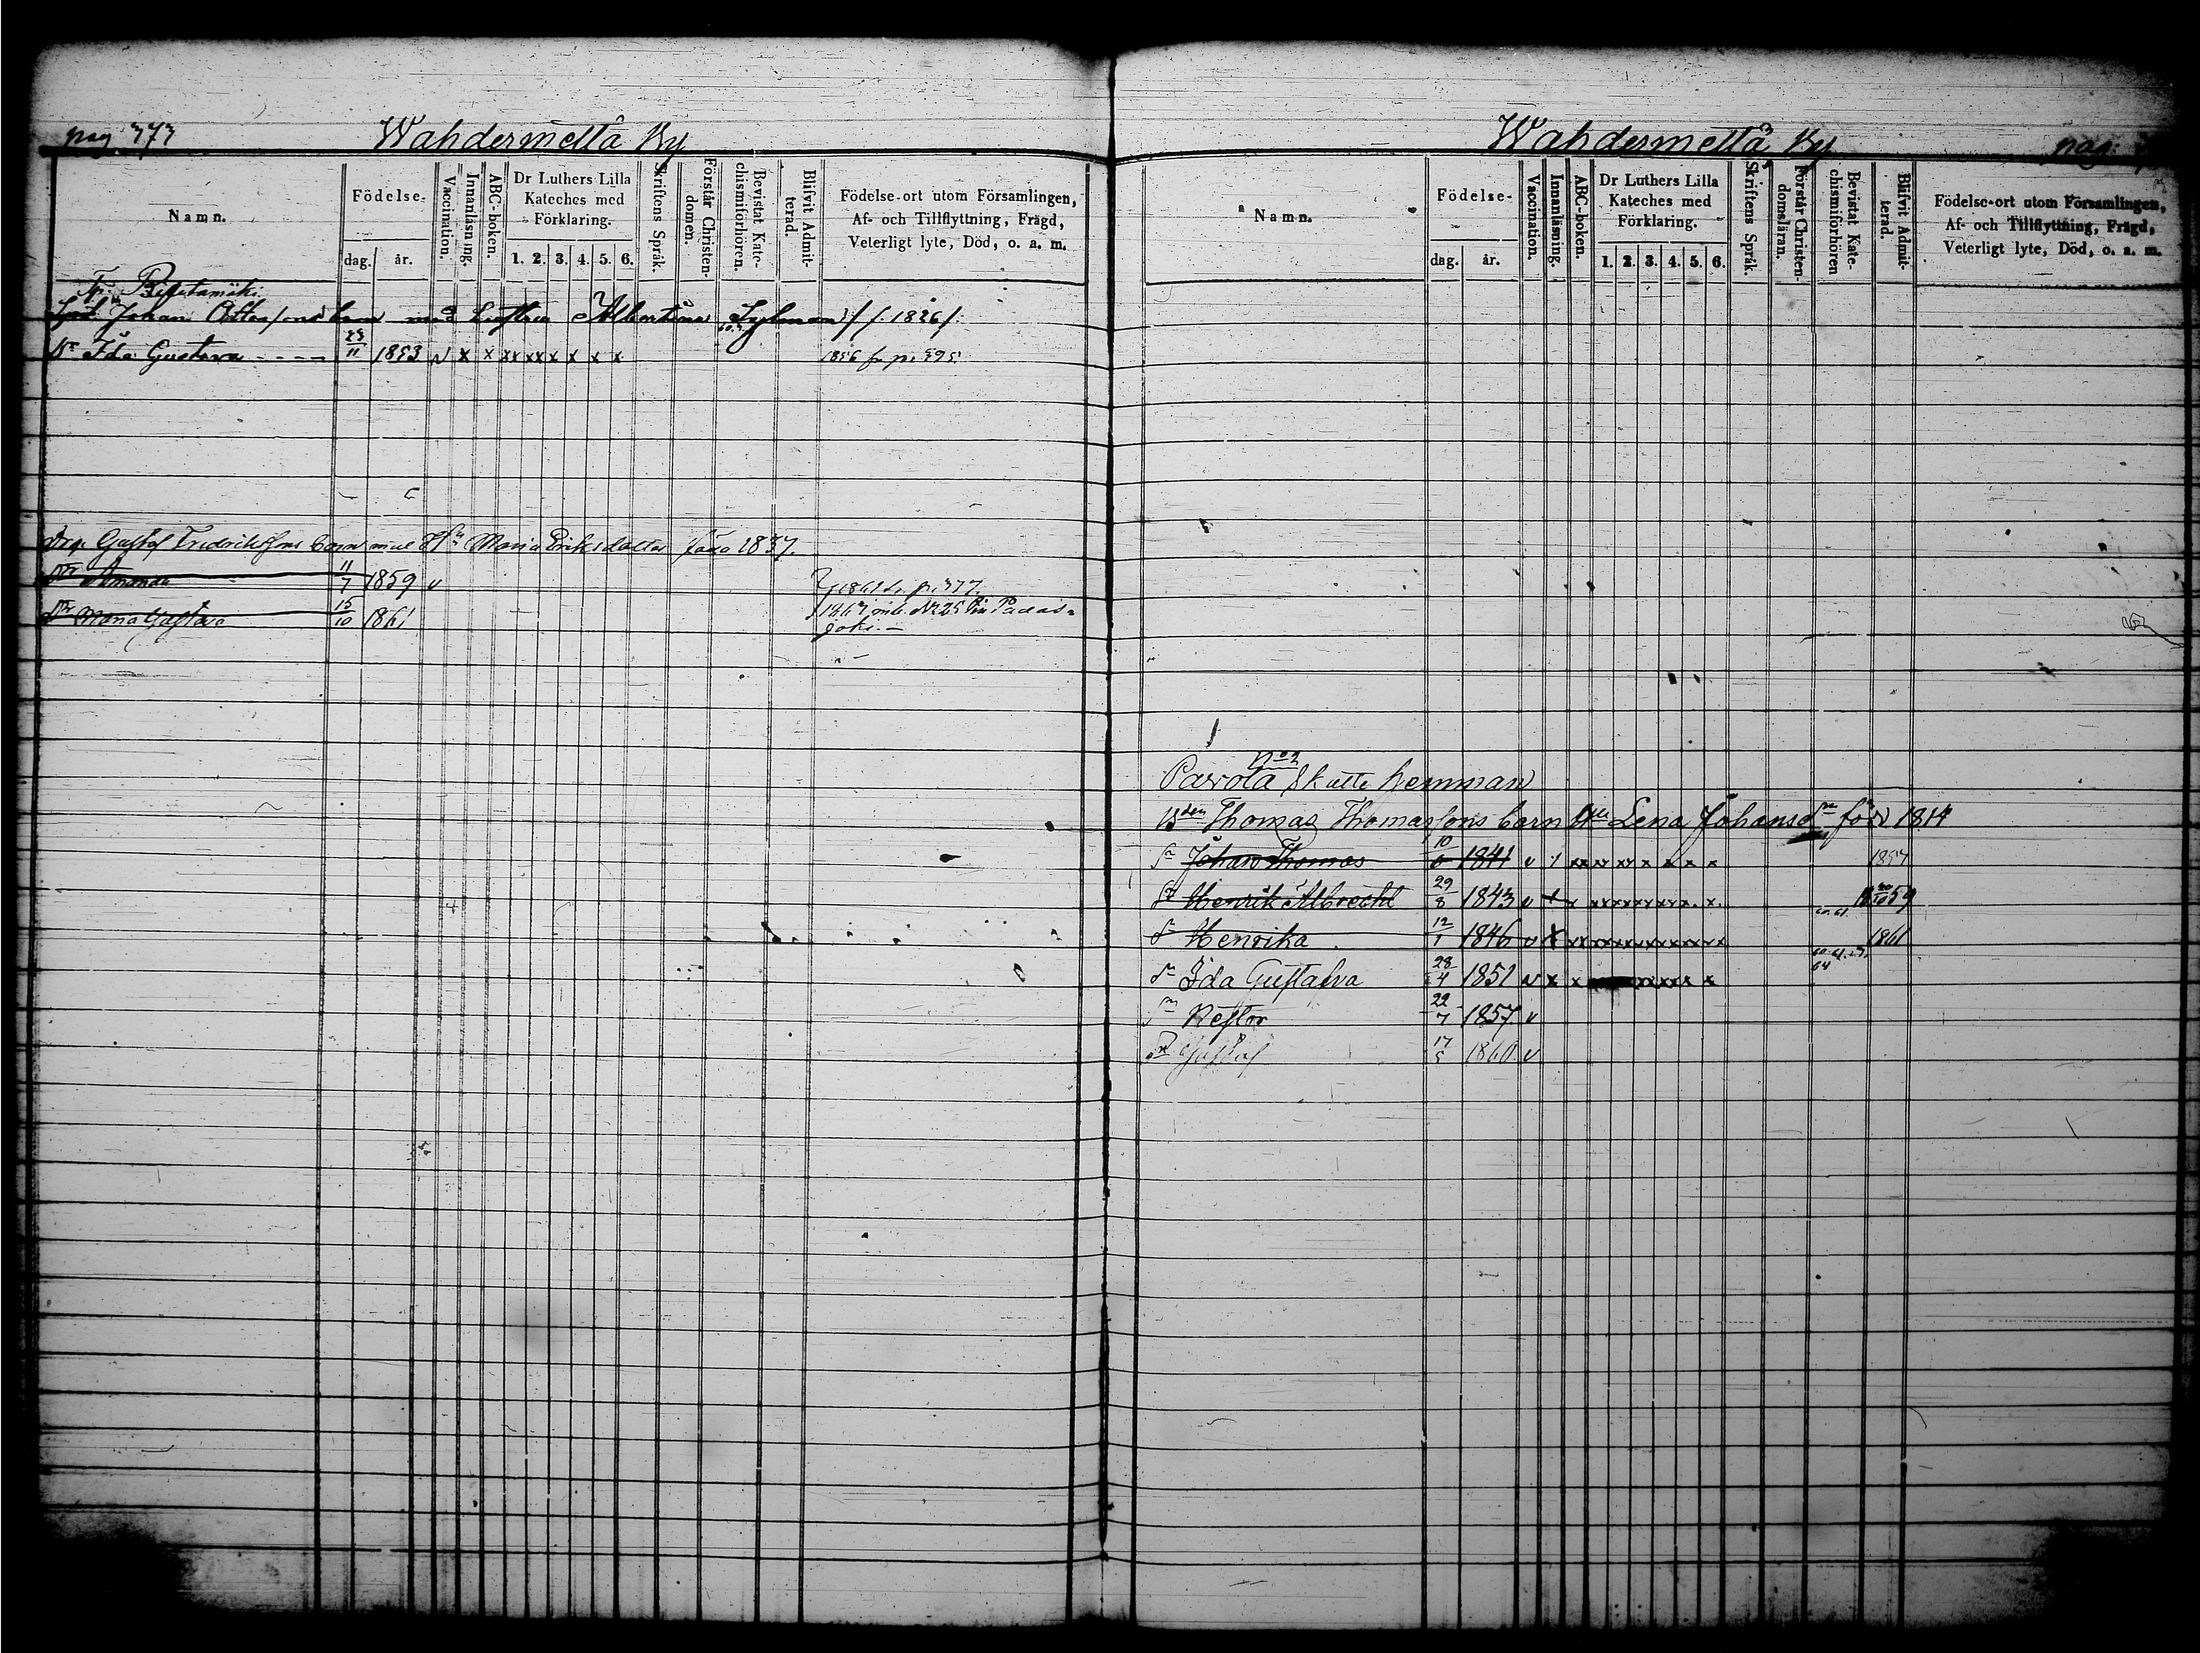 pag. 373 Wahdermetta By
Namn. Födelse- dag. år. Vaccination. Innanläsning. ABC-boken. Dr Luthers Lilla Kateches med Förklaring. 1. 2. 3. 4. 5. 6. Skriftens Språk. Förstår Christendomen. Bevistat Katechismiförhören. Blifvit Admitterad. Födelse-ort utom Församlingen, Af- och Tillflyttning, Frägd, Veterligt lyte, Död, o. a. m.
Johan Ottessons barn med hustru Albertina 1826
Dr Ida Gustava 23/11 1853 v x x xx xx x x x x 1856 fr p. 395
Gustaf Fredrikssons barn med Hu Maria Eriksdotter född 1837.
Dr Amanda 11/7 1859 v 1861 fr. p. 377.
Dr Maria Gustava 15/10 1861 1863 mb. N 25 fin Padas-
joki.
Wahdermetta By pag.
Namn. Födelse- dag. år. Vaccination. Innanläsning. ABC-boken. Dr Luthers Lilla Kateches med Förklaring. 1. 2. 3. 4. 5. 6. Skriftens Språk. Förstår Christendomsläran. Bevistat Katechismiförhören Blifvit Admitterad. Födelse-ort utom Församlingen, Af- och Tillflyttning, Frägd, Veterligt lyte, Död, o. a. m.
No 2
Parola Skatte hemman
Bden Thomas Thomassons barn Lena Johansdr född 1814
Sn Johan Thomas 10/6 1841 v 1857
Sn Henrik Albrecht 29/8 1843 v 59
Dr Henrika 12/1 1846 v x 60.61. 1861
Dr Ida Gustafva 28/4 1851 v x x 64
Sn Nestor 22/7 1857 v
Sn Gustaf 17/5 1860 v